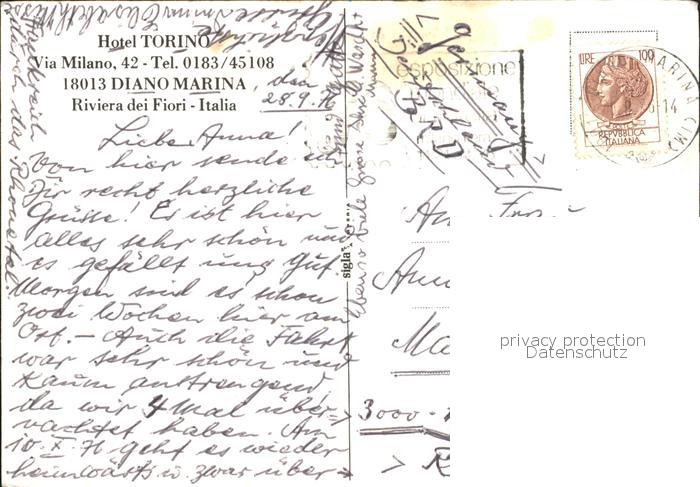 Hotel TORINO
Via Milano, 42 - Tel. 0183/45108
18013 DIANO MARINA, den
Riviera dei Fiori - Italia 28.9.76
Liebe Anna!
Von hier sende ich
Dir recht herzliche
Grüsse! Es ist hier
alles sehr schön und
es gefällt uns gut.
Morgen sind es schon
zwei Wochen hier am
Ort. - Auch die Fahrt
war sehr schön und
kaum anstrengend,
da wir 4 Mal über-
nachtet haben. Am
10. X. 76 geht es wieder
heimwärts u. zwar über
Frankreich
durch das Rhonetal.
sigla
Ebenso viele Grüsse
esposizione
Germany
BRD
LIRE 100
REPVBBLICA
ITALIANA
An Frau
Ann
Ma
3000
privacy protection
Datenschutz